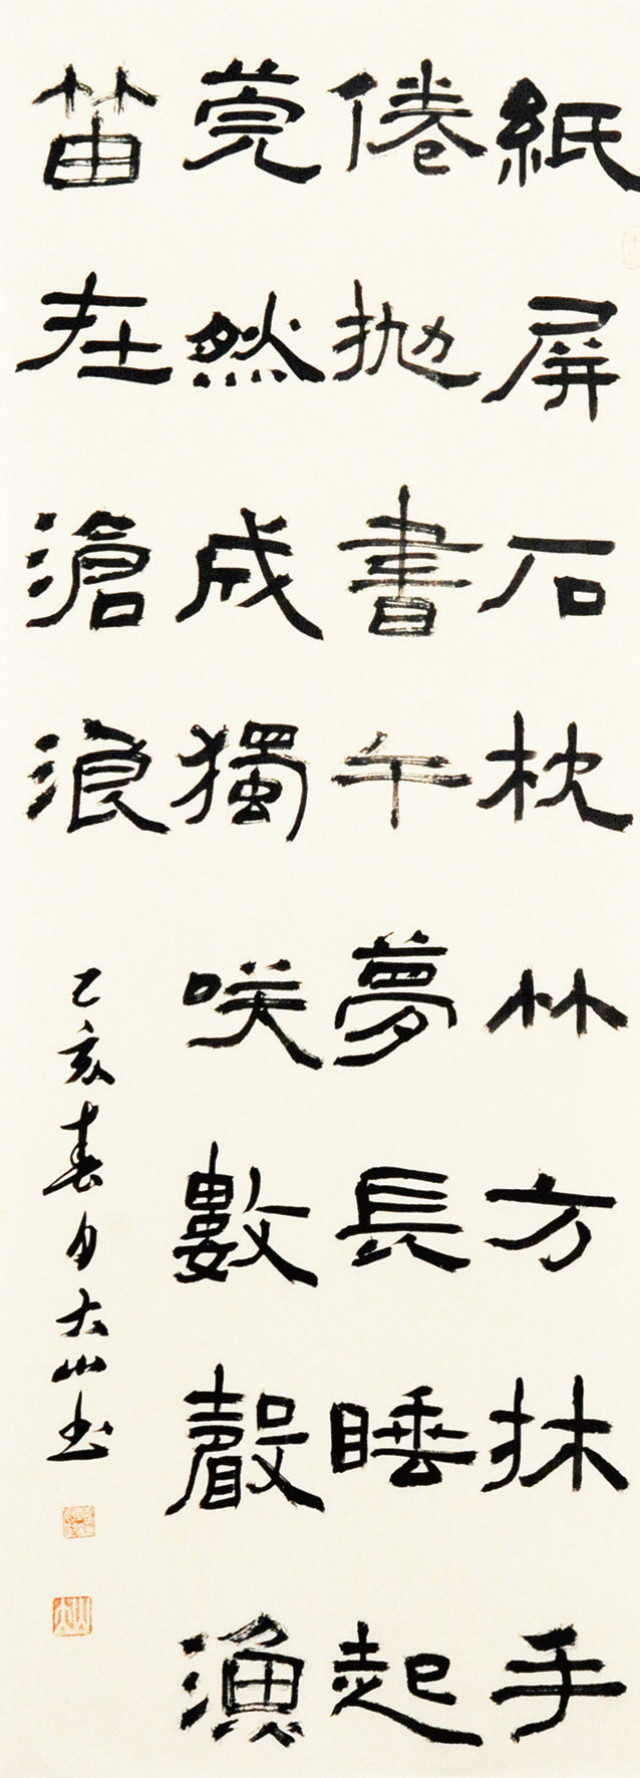 紙屏石枕竹方牀手
倦抛書午夢長睡起
莞然成獨咲數聲漁
笛在滄浪
己亥春月大山书